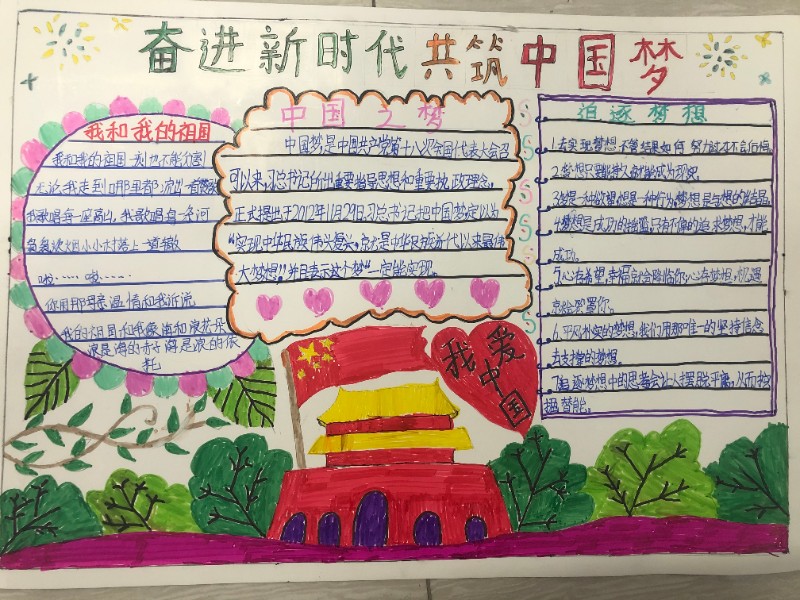 奋进新时代共筑中国梦
我和我的祖国
我和我的祖国一刻也不能分割
无论我走到哪里都流出一首赞歌
我歌唱每一座高山,我歌唱每一条河
袅袅炊烟小小村落路上一道辙
啦……啦……
你用那母亲温情和我诉流
我的祖国和我像海和浪花朵
浪是海的赤子海是浪的依
托
中国之梦
中国梦是中国共产党第十八次全国代表大会召
可以来,习总书记所出重要指导思想和重要执政理念,
正式提出于2012年11月29日.习总书记把中国梦定以为
“实现中华民族伟大复兴,就是中华民族近代以来最伟
大梦想!并且表示这个梦“一定能实现。
追逐梦想
1.去实现梦想,不管结果如何,努力过才不会后悔。
2.梦想只要能持久,就能成为现实
4.梦想是成功的钥匙,只有不停的追求梦想,才能
成功。
5.心存希望,幸福就会降临你;心存梦想,机遇
就会笼罩你。
6.平凡朴实的梦想,我们用那唯一的坚持信念
去支撑的梦想
7.追逐梦想中的思考会让人摆脱平庸,从而
我爱
中国